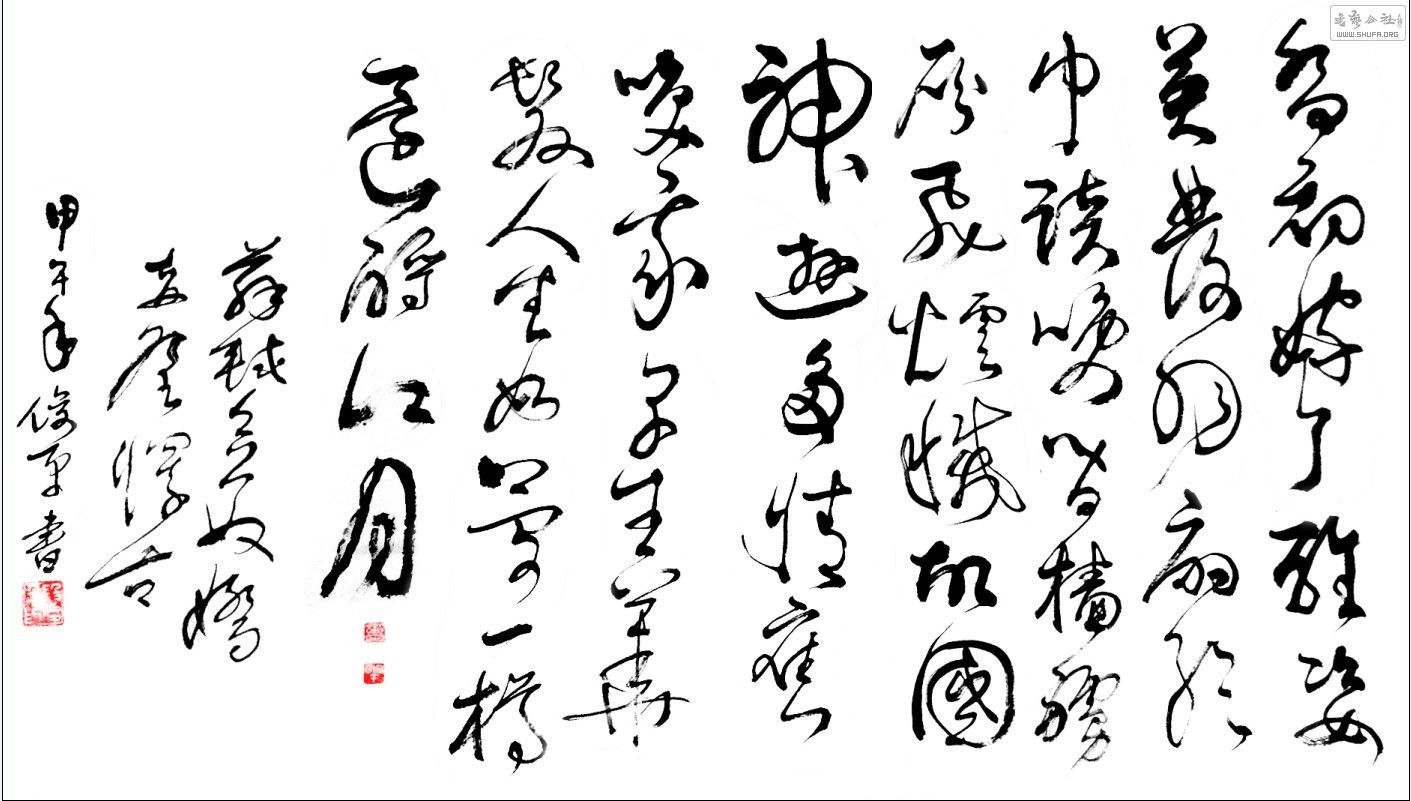 喬初嫁了雄姿
英發羽扇綸
巾談咲間檣艣
灰飛煙滅故國
神遊多情應
咲我早生華
髮人生如夢一樽
還酹江月
蘇軾念奴嬌
赤壁懷古
甲午年俊書
書藝公社
WWW.SHUFA.ORG